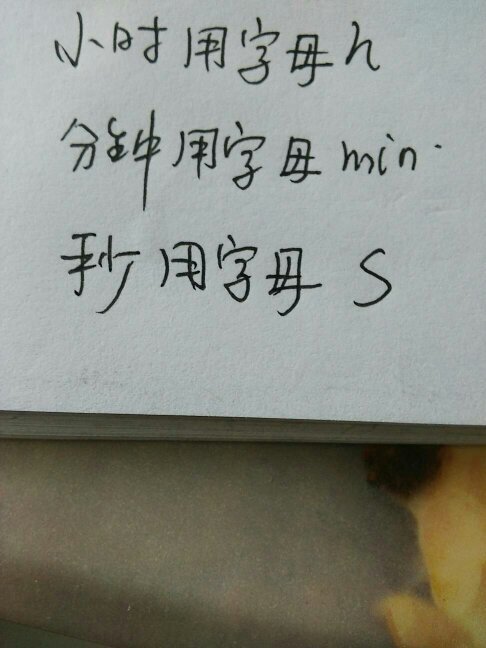 小时用字母h
分钟用字母min.
秒用字母S